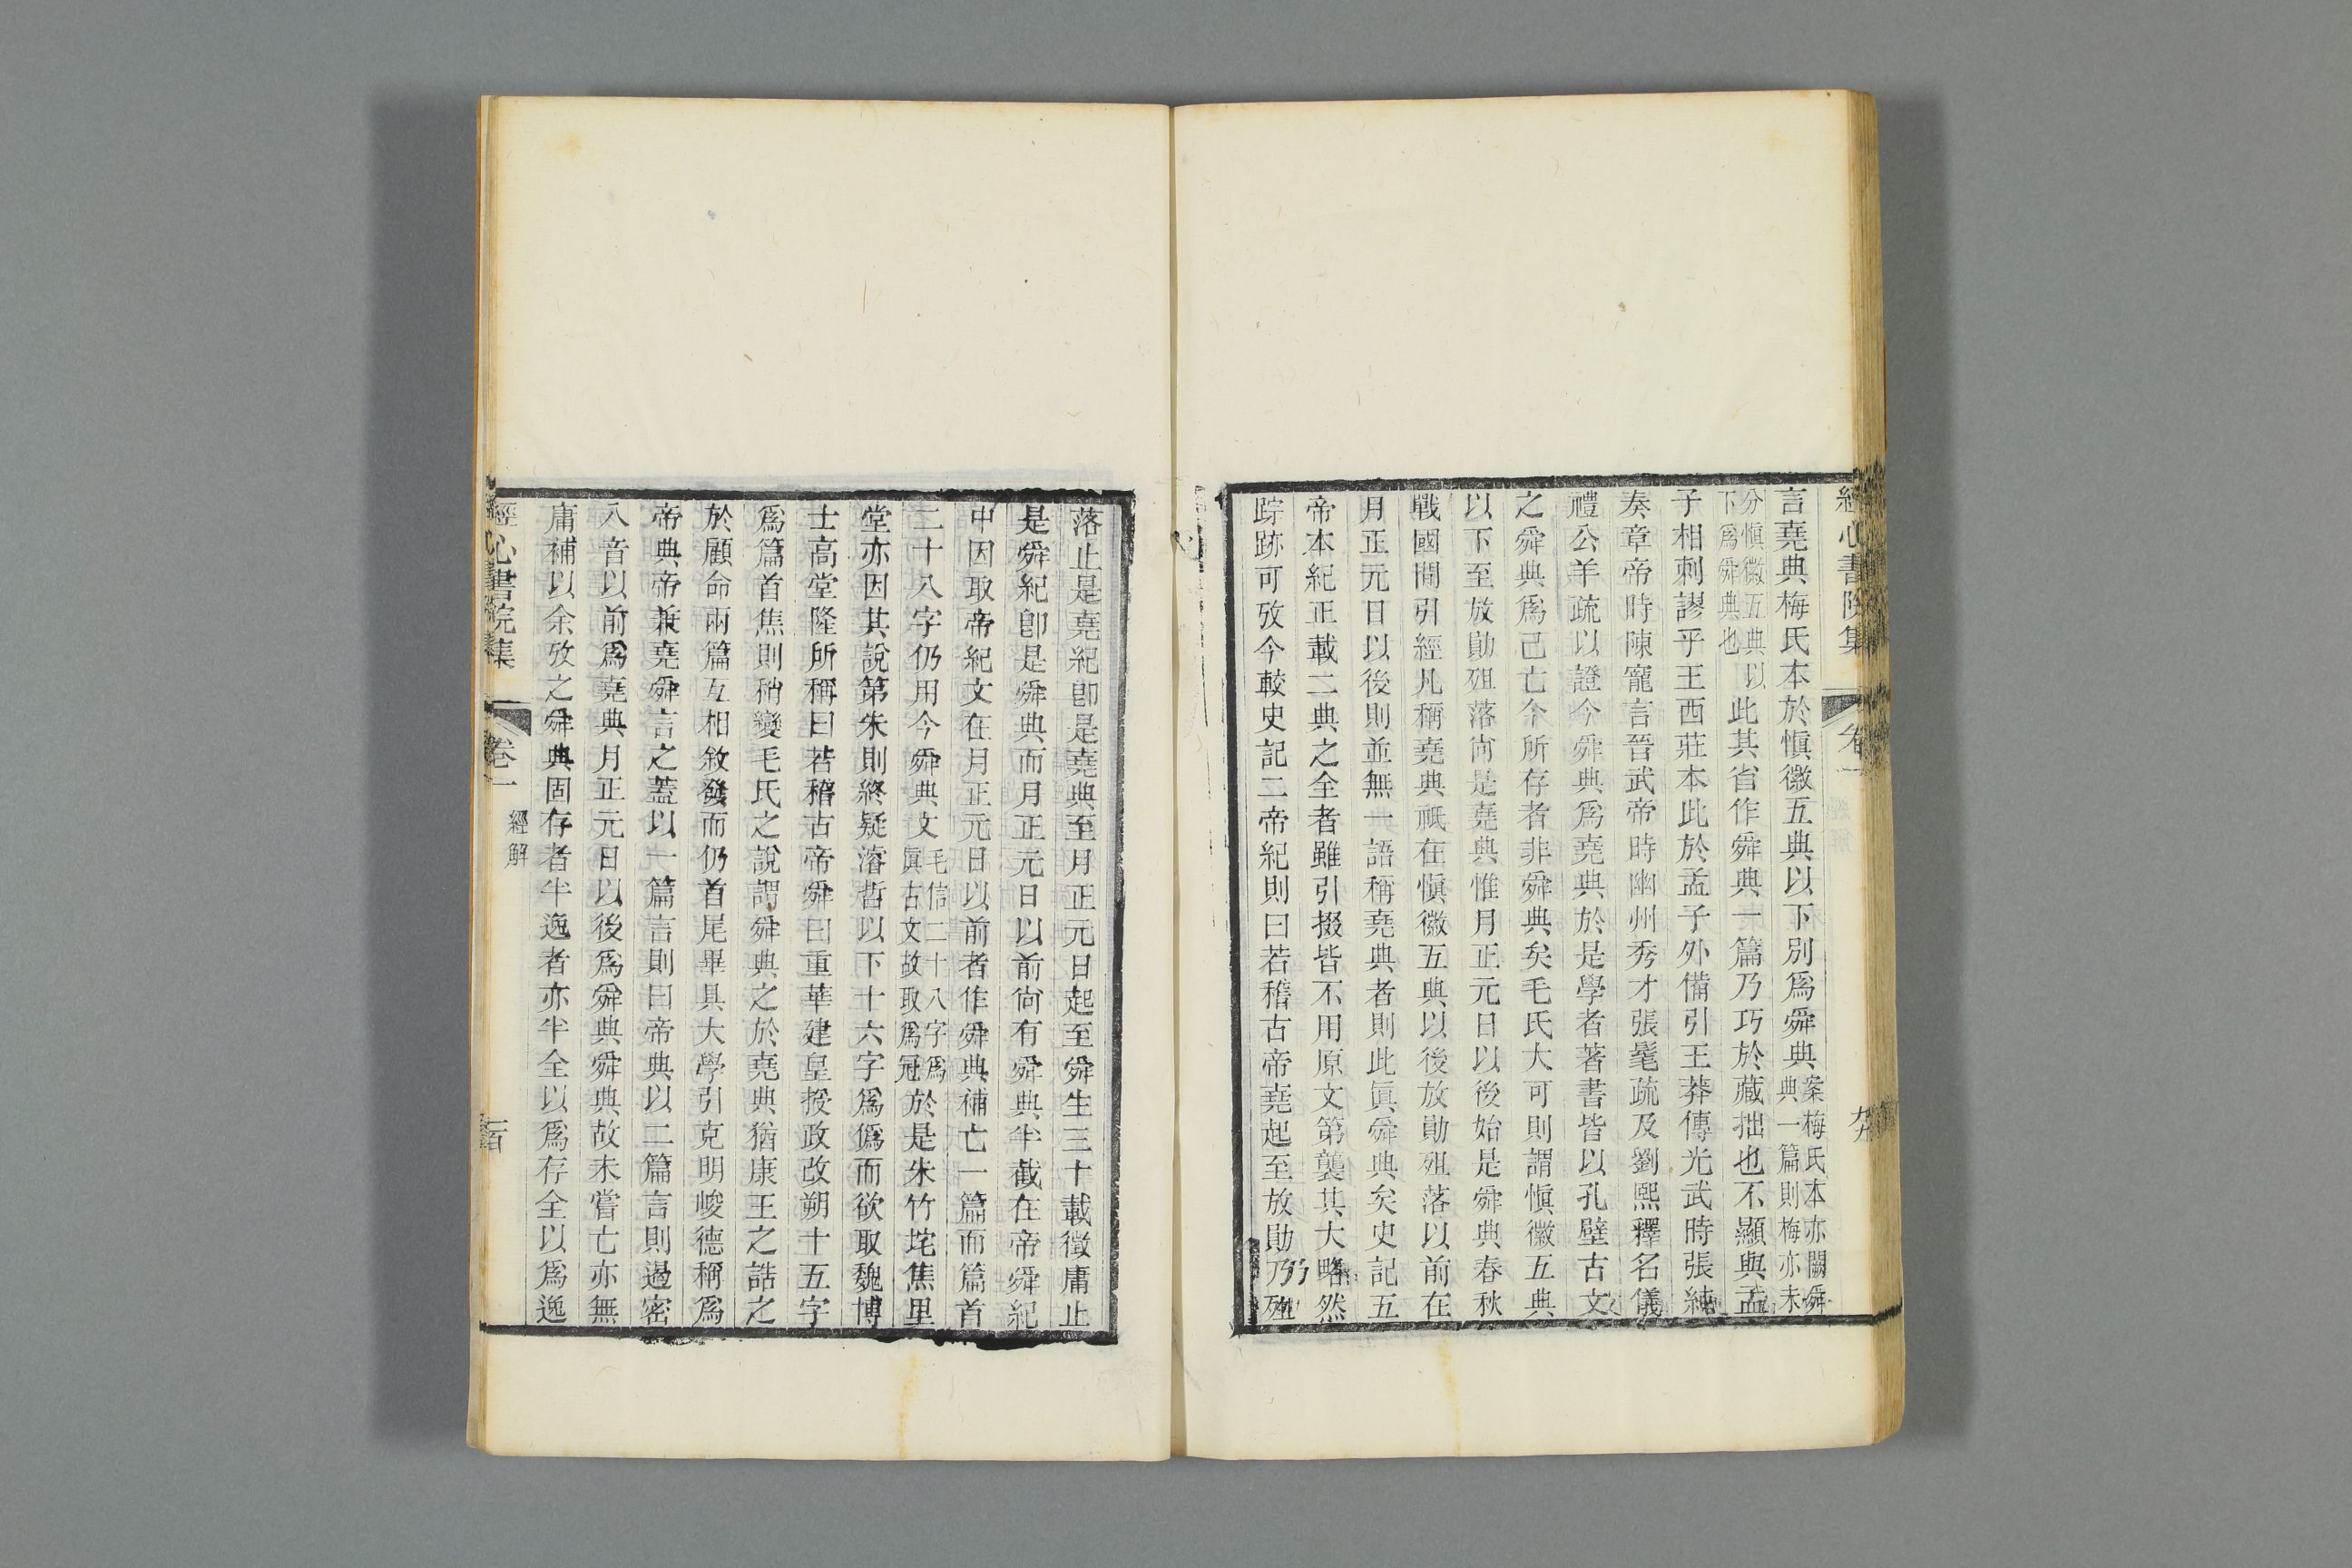 經心書院集 卷一 九九
言堯典梅氏本於愼徽五典以下別爲舜典案梅氏本亦闕舜典一篇則梅亦未
分愼徽五典以下爲舜典也此其省作舜典一篇乃巧於藏拙也不顯與孟
子相刺謬乎王西莊本此於孟子外備引王莽傳光武時張純
奏章帝時陳寵言晉武帝時幽州秀才張髦疏及劉熙釋名儀
禮公羊疏以證今舜典爲堯典於是學者著書皆以孔壁古文
之舜典爲已亡今所存者非舜典矣毛氏大可則謂愼徽五典
以下至放勛殂落尙是堯典惟月正元日以後始是舜典春秋
戰國閒引經凡稱堯典祗在愼徽五典以後放勛殂落以前在
月正元日以後則並無一語稱堯典者則此眞舜典矣史記五
帝本紀正載二典之全者雖引掇皆不用原文第襲其大略然
踪跡可攷今較史記二帝紀則曰若稽古帝堯起至放勛乃殂
落止是堯紀卽是堯典至月正元日起至舜生三十載徵庸止
是舜紀卽是舜典而月正元日以前尙有舜典半截在帝舜紀
中因取帝紀文在月正元日以前者作舜典補亡一篇而篇首
二十八字仍用今舜典文毛信二十八字爲眞古文故取爲冠於是朱竹垞焦里
堂亦因其說第朱則終疑濬哲以下十六字爲僞而欲取魏博
士高堂隆所稱曰若稽古帝舜曰重華建皇授政改朔十五字
爲篇首焦則稍變毛氏之說謂舜典之於堯典猶康王之誥之
於顧命兩篇互相敘發而仍首尾畢具大學引克明峻德稱爲
帝典帝兼堯舜言之蓋以一篇言則曰帝典以二篇言則遏密
八音以前爲堯典月正元日以後爲舜典舜典故未嘗亡亦無
庸補以余攷之舜典固存者半逸者亦半全以爲存全以爲逸
經心書院集 卷一 經解 一百